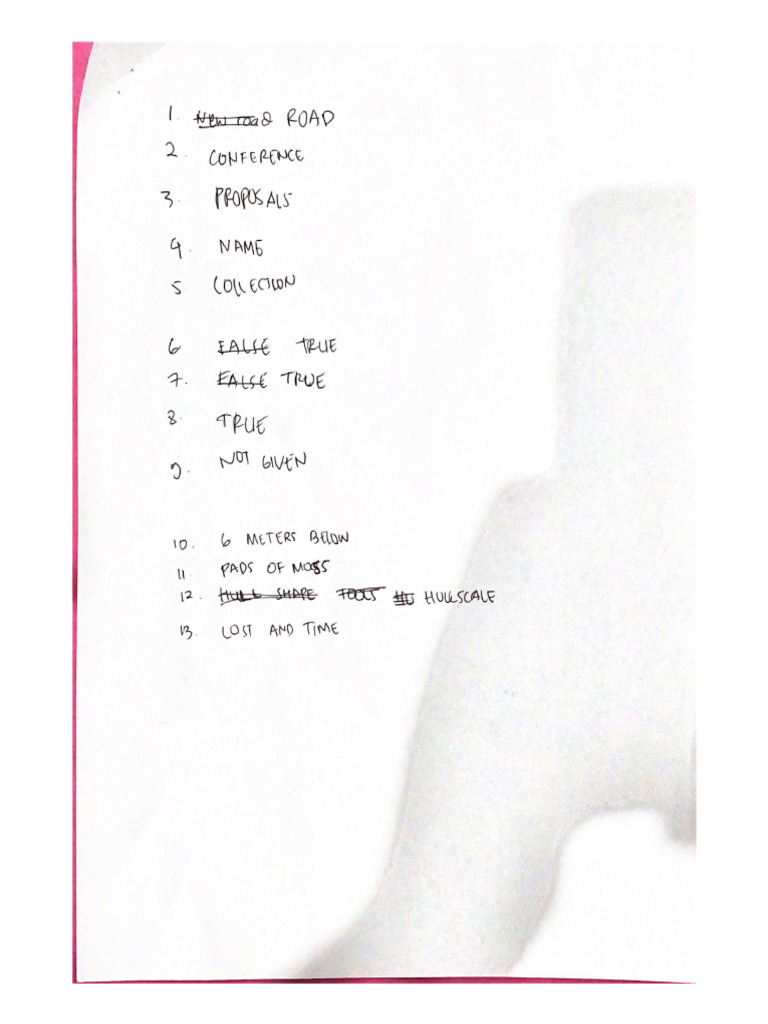 1. New road ROAD
2. CONFERENCE
3. PROPOSALS
4. NAME
5 COLLECTION
6 FALSE TRUE
7. FALSE TRUE
8. TRUE
9. NOT GIVEN
10. 6 METERS BELOW
11 PADS OF MOSS
12. HULL SHAPE TOOLS HULLSCALE
13. LOST AND TIME